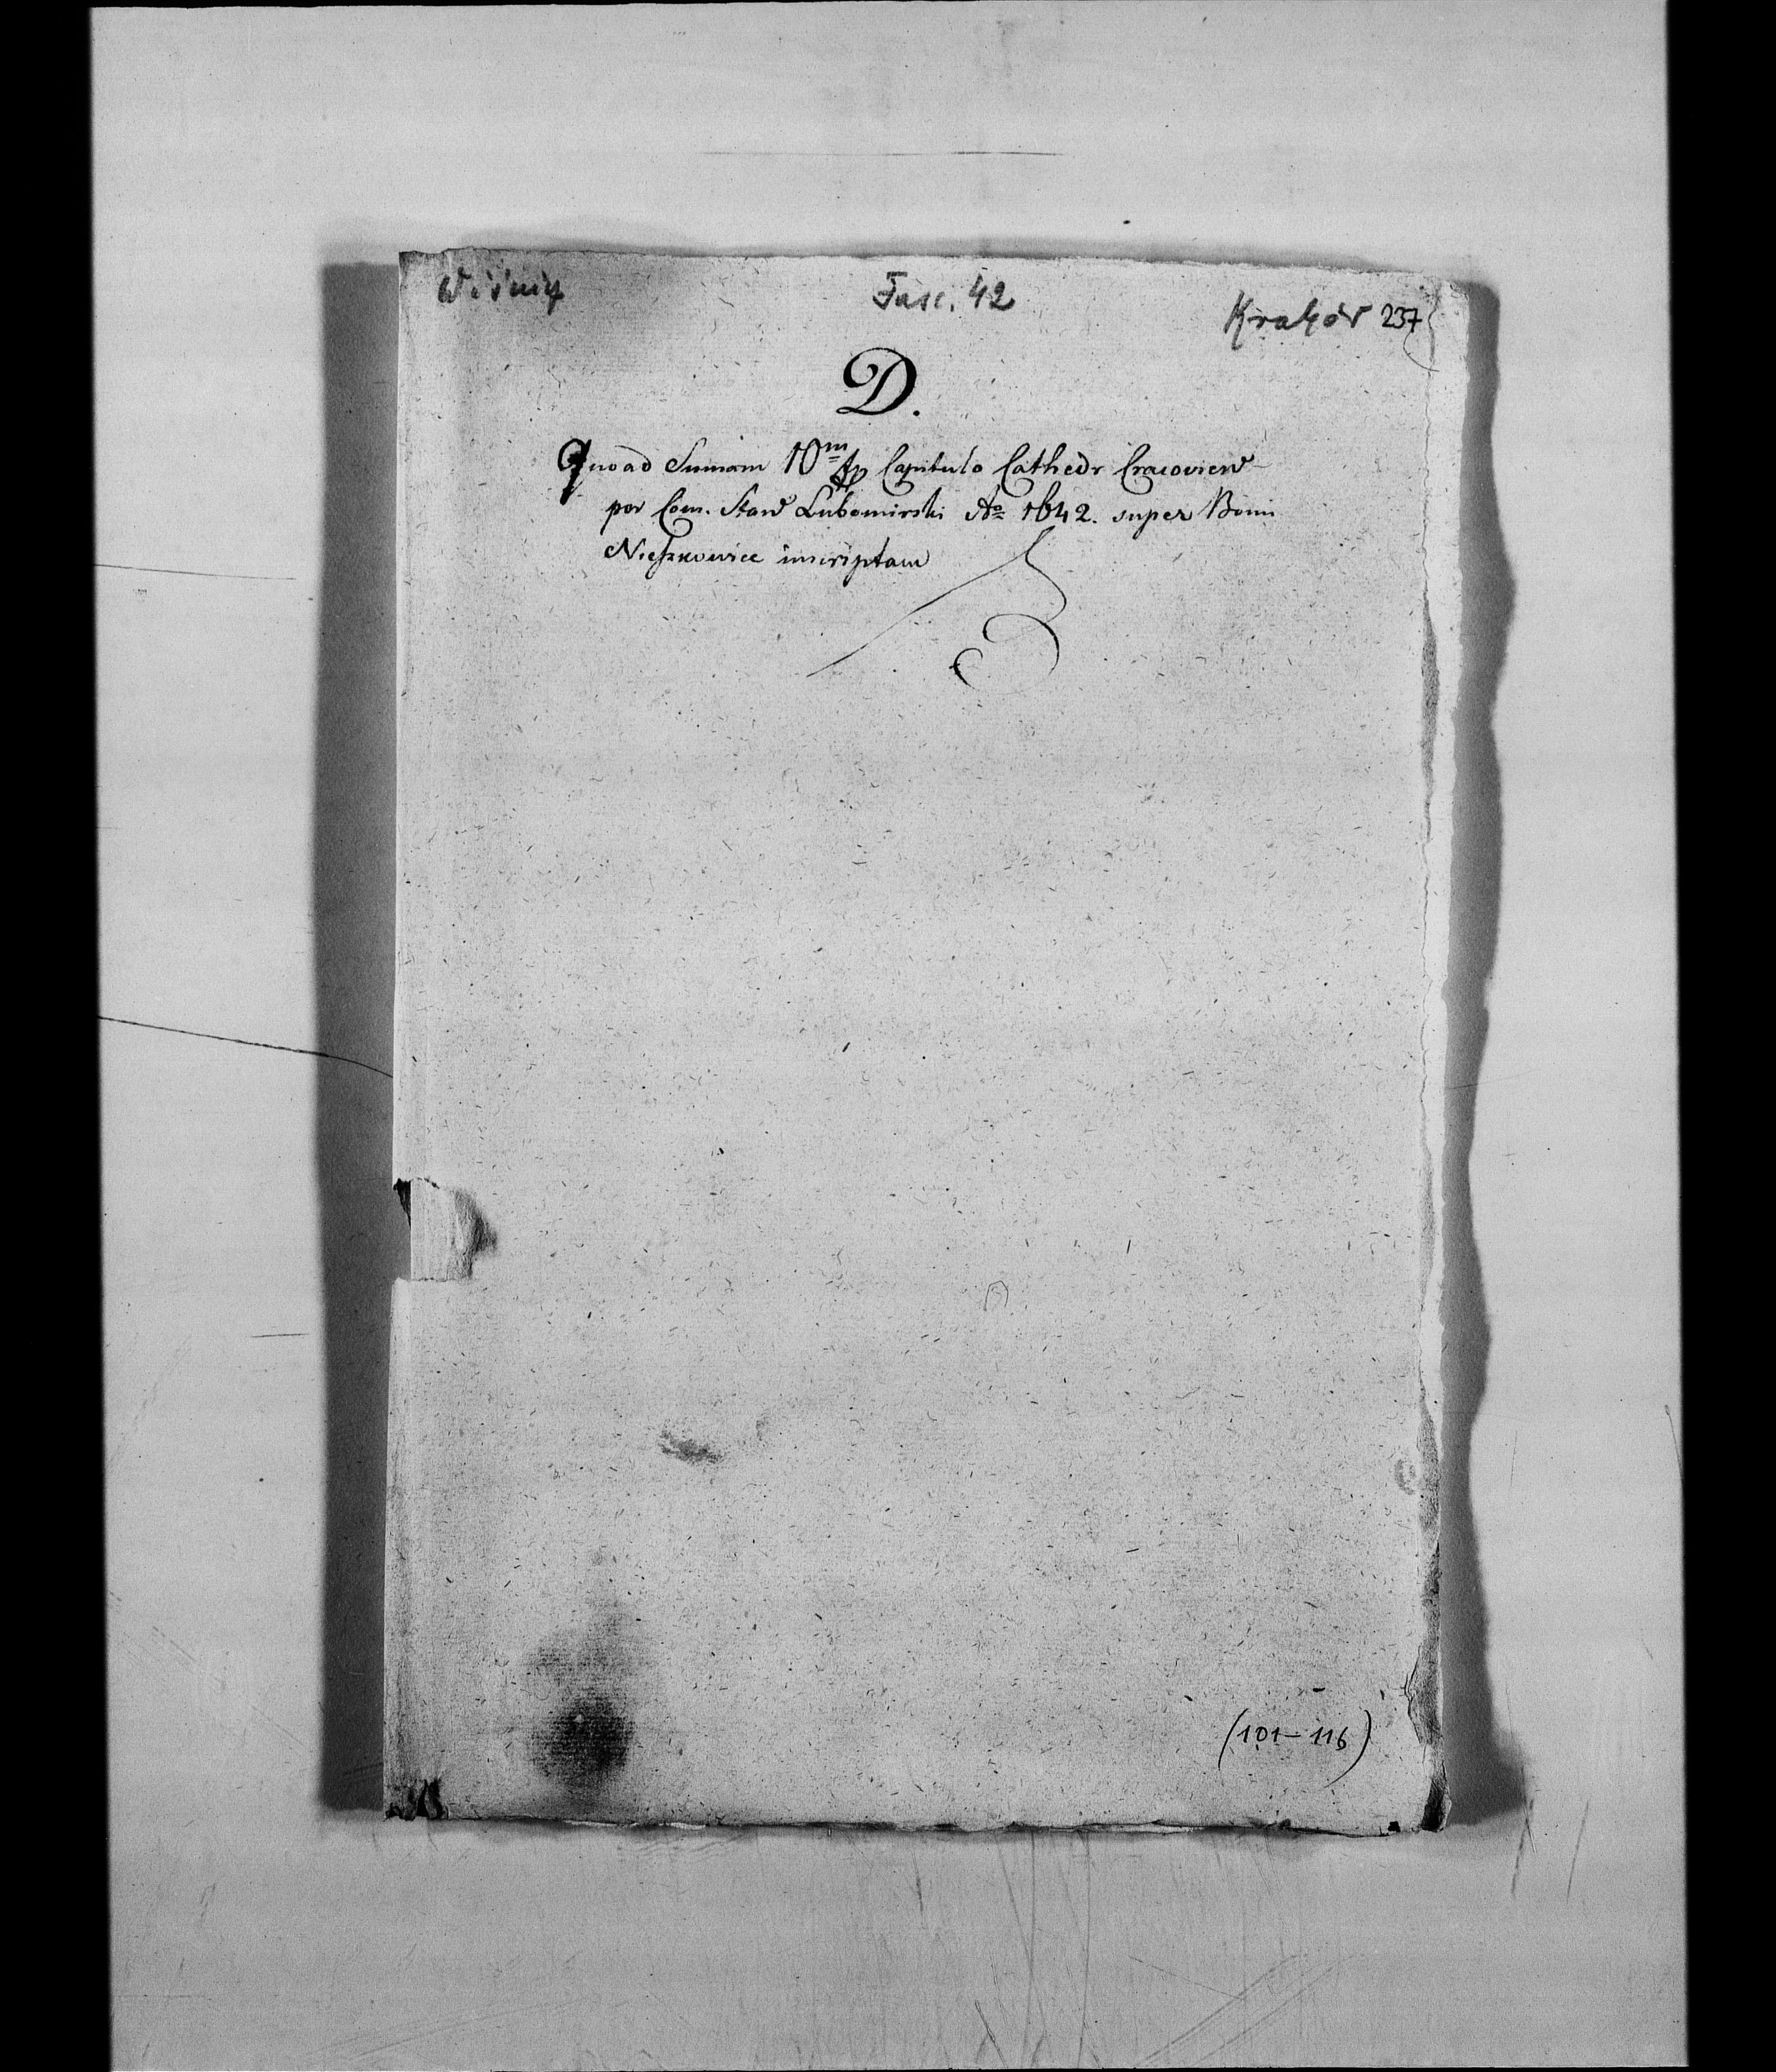 Wiśnicz Fasc. 42 Kraków 237
D.
Quoad Summam 10m fp Capitulo Cathedr Cracovien
per Com. Stan Lubomirski Ao 1642. super Bonis
Nieszkowice inscriptam
(101-116)